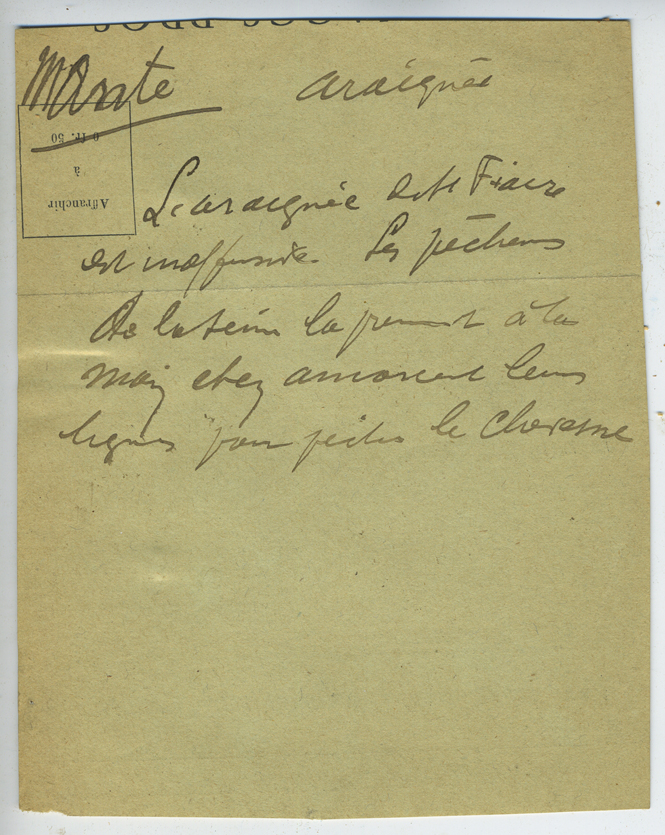 Mante araignée
L'araignée de St Fiacre
est inoffensive. Les pêcheurs
de la Seine la prennent à la
main et en amorcent leurs
lignes pour pêcher le chevesne
0 fr. 50
à
Affranchir